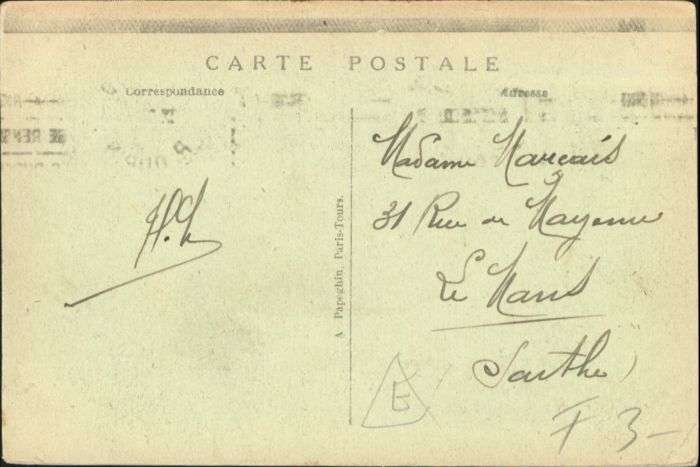 CARTE POSTALE
Correspondance
Adresse
Madame Marcais
31 Rue de Mayenne
Le Mans
(Sarthe)
H.L
A Papeghin, Paris-Tours.
E
F 3-